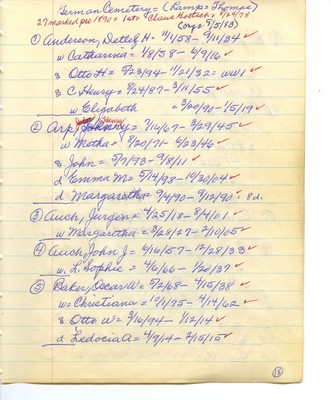 German Cemetery - (Kamp = Thomas)
27 marked pre 1890 = lots 8/24/78
Corp = 9/5/83)
① Anderson, Detlef H - 11/1/58 - 9/11/34 ✓
w Catharina = 1/8/58 - 6/9/16 ✓
s Otto H = 5/23/94 - 1/21/32 = WW1 ✓
s C Henry = 9/24/87 - 3/11/55 ✓
w Elizabeth = 3/20/90 - 1/5/19 ✓
② Arp, Henry = 7/16/67 - 3/29/45 ✓
w Metha = 8/20/71 - 6/23/46 ✓
s John = 5/7/93 - 9/8/11 ✓
d Emma M = 5/14/98 - 10/20/04 ✓
d Margaretha = 9/4/90 - 9/12/90 ✓ 8d.
③ Auch, Jurgen = 4/25/18 - 8/4/01 ✓
w Margaretha = 3/28/27 - 2/10/05 ✓
④ Auch, John J = 6/16/57 - 12/28/33 ✓
w. L. Sophie = 4/6/66 - 1/20/37 ✓
⑤ Baker, Oscar W = 5/2/68 - 4/15/38 ✓
w = Christiana = 10/1/75 - 4/14/62 ✓
s Otto W = 3/16/94 - 1/12/14 ✓
d Ledocia A = 4/9/14 - 2/15/15 ✓